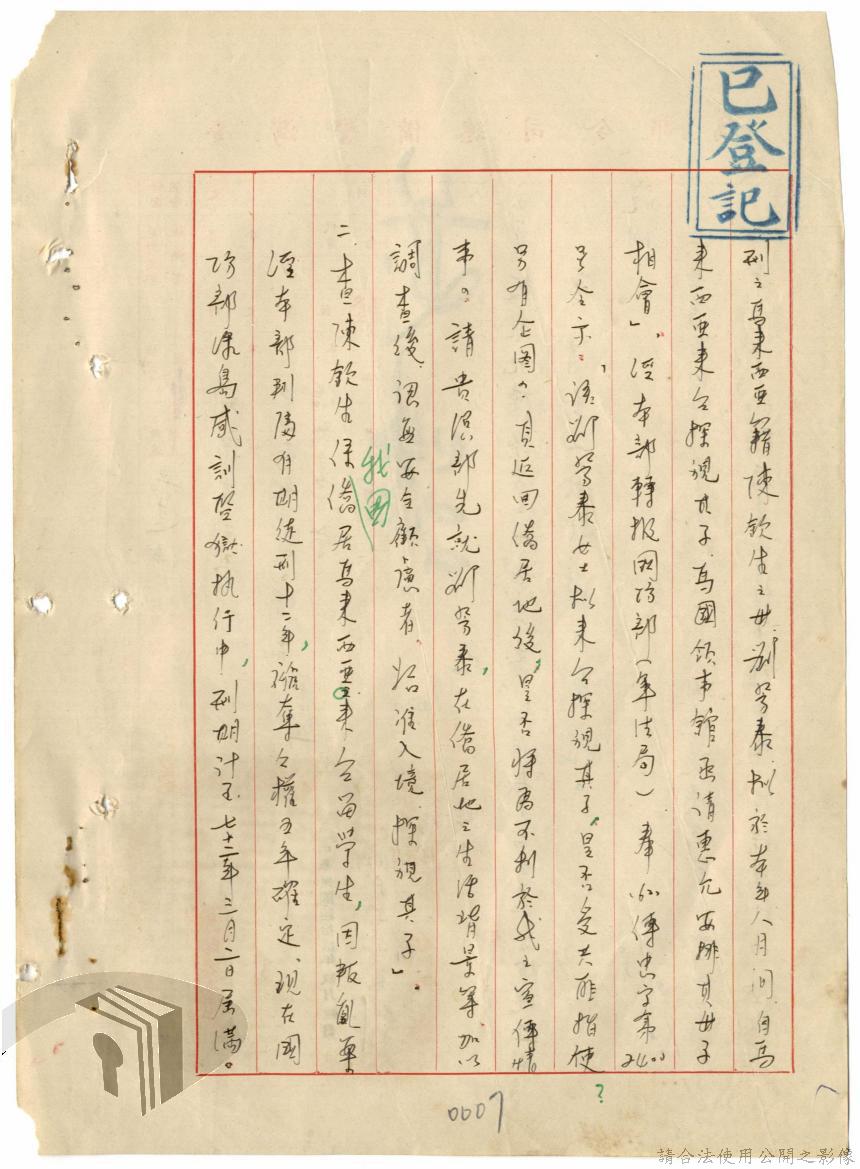 已登記
刑之馬來西亞籍陳欽生之母劉琴泰擬於本年八月間自馬
來西亞來台探視其子、馬國領事館函請惠允安排其母子
相會」、經本部轉報國防部(軍法局)奉(60)傳忠字第2400
號令示:「語劉琴泰女士擬來台探視其子、是否受共匪指使
另有企圖?其返回僑居地後,是否將為不利於我之宣傳情
事?請貴保部先就劉琴泰,在僑居地之生活背景等加以
調查後、認無安全顧慮者、始准入境、探視其子」。
二、查陳欽生係我國僑居馬來西亞來台留學生,因叛亂案
經本部判處有期徒刑十二年,褫奪公權五年確定、現在國
防部綠島感訓監獄執行中,刑期計至七十二年三月二日屆滿。
?
0007
請合法使用公開之影像